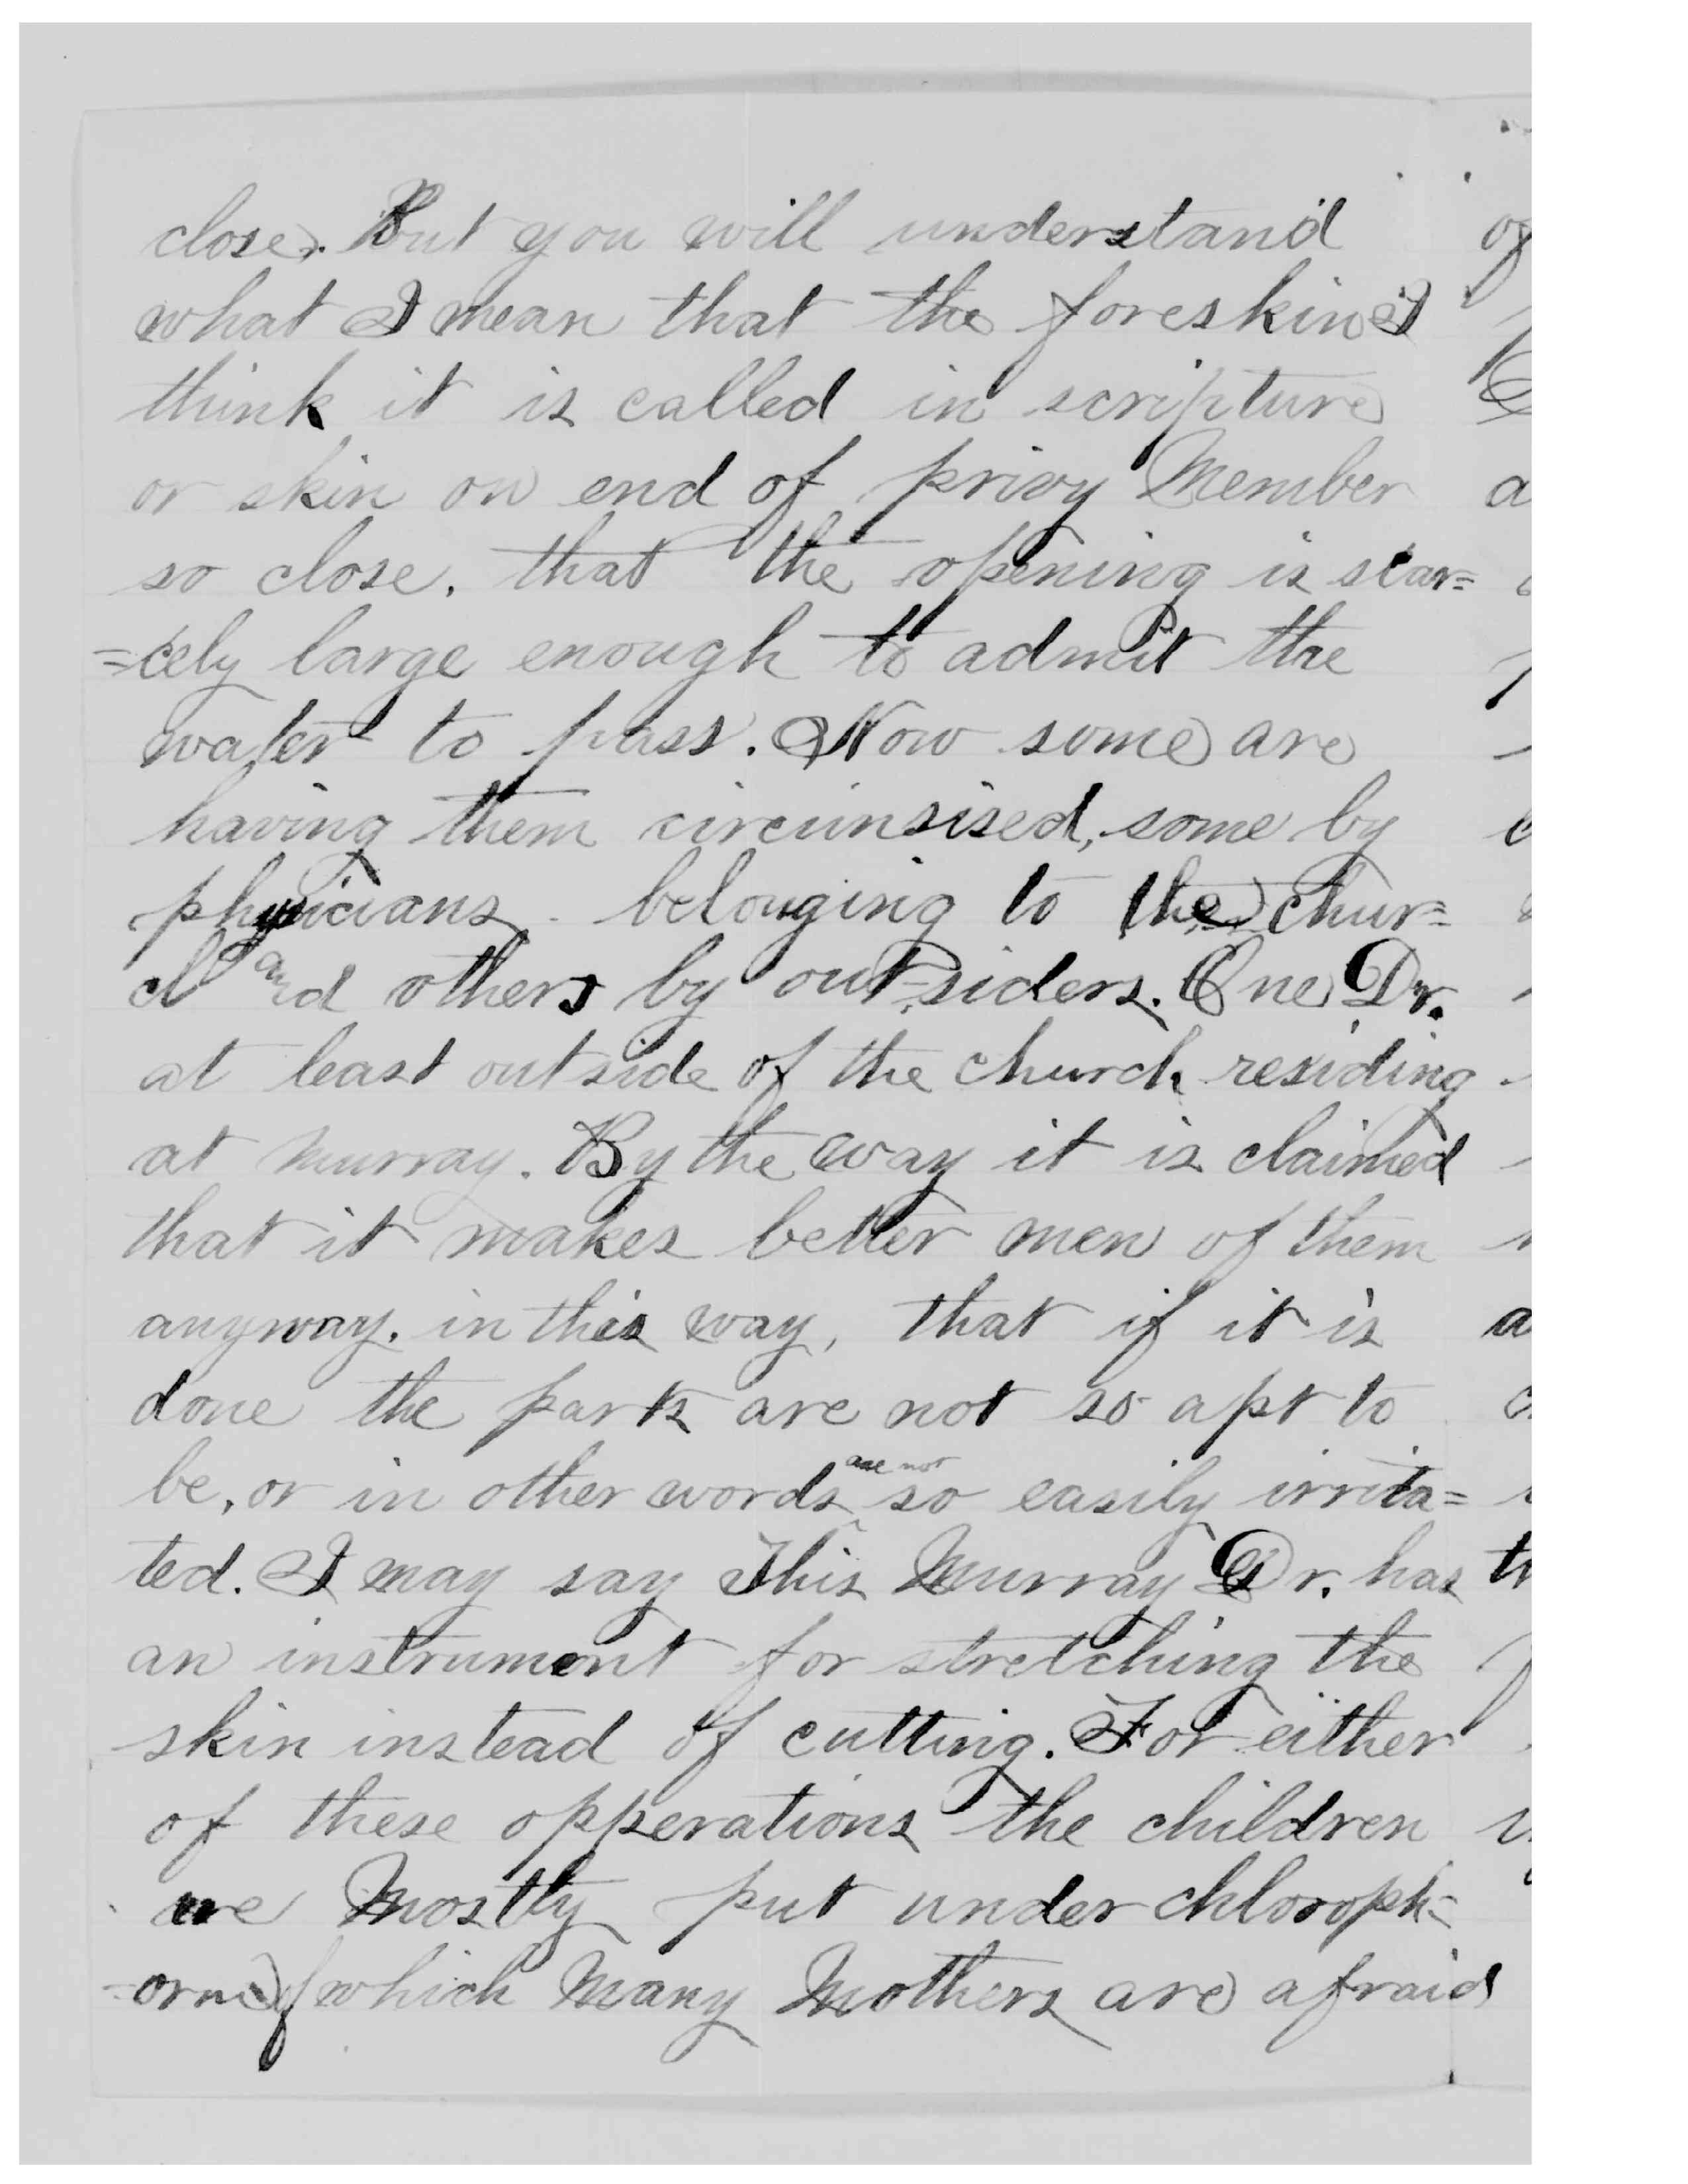 close. But you will understand
what I mean that the foreskin I
think it is called in scripture
or skin on end of privy Member
so close, that the opening is scar=
=cely large enough to admit the
water to pass. Now some are
having them circumsised, some by
physicians belonging to the chur=
ch and others by out-siders. One Dr.
at least outside of the church residing
at Murray. By the way it is claimed
that it makes better men of them
anyway. in this way, that if it is
done the parts are not so apt to
be, or in other words are not so easily irrita=
ted. I may say This Murray Dr. has
an instrument for stretching the
skin instead of cutting. For either
of these opperations the children
are Mostly put under chloroph=
=orm which Many Mothers are afraid